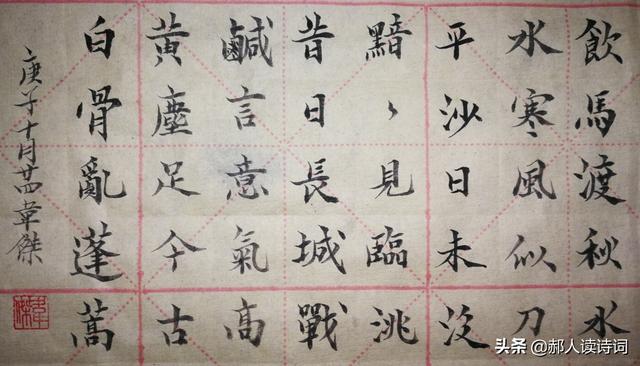 飲馬渡秋水
水寒風似刀
平沙日未没
黯〻見臨洮
昔日長城戰
鹹言意氣高
黃塵足今古
白骨亂蓬蒿
庚子十月廿四韋傑
头条 @郝人读诗词